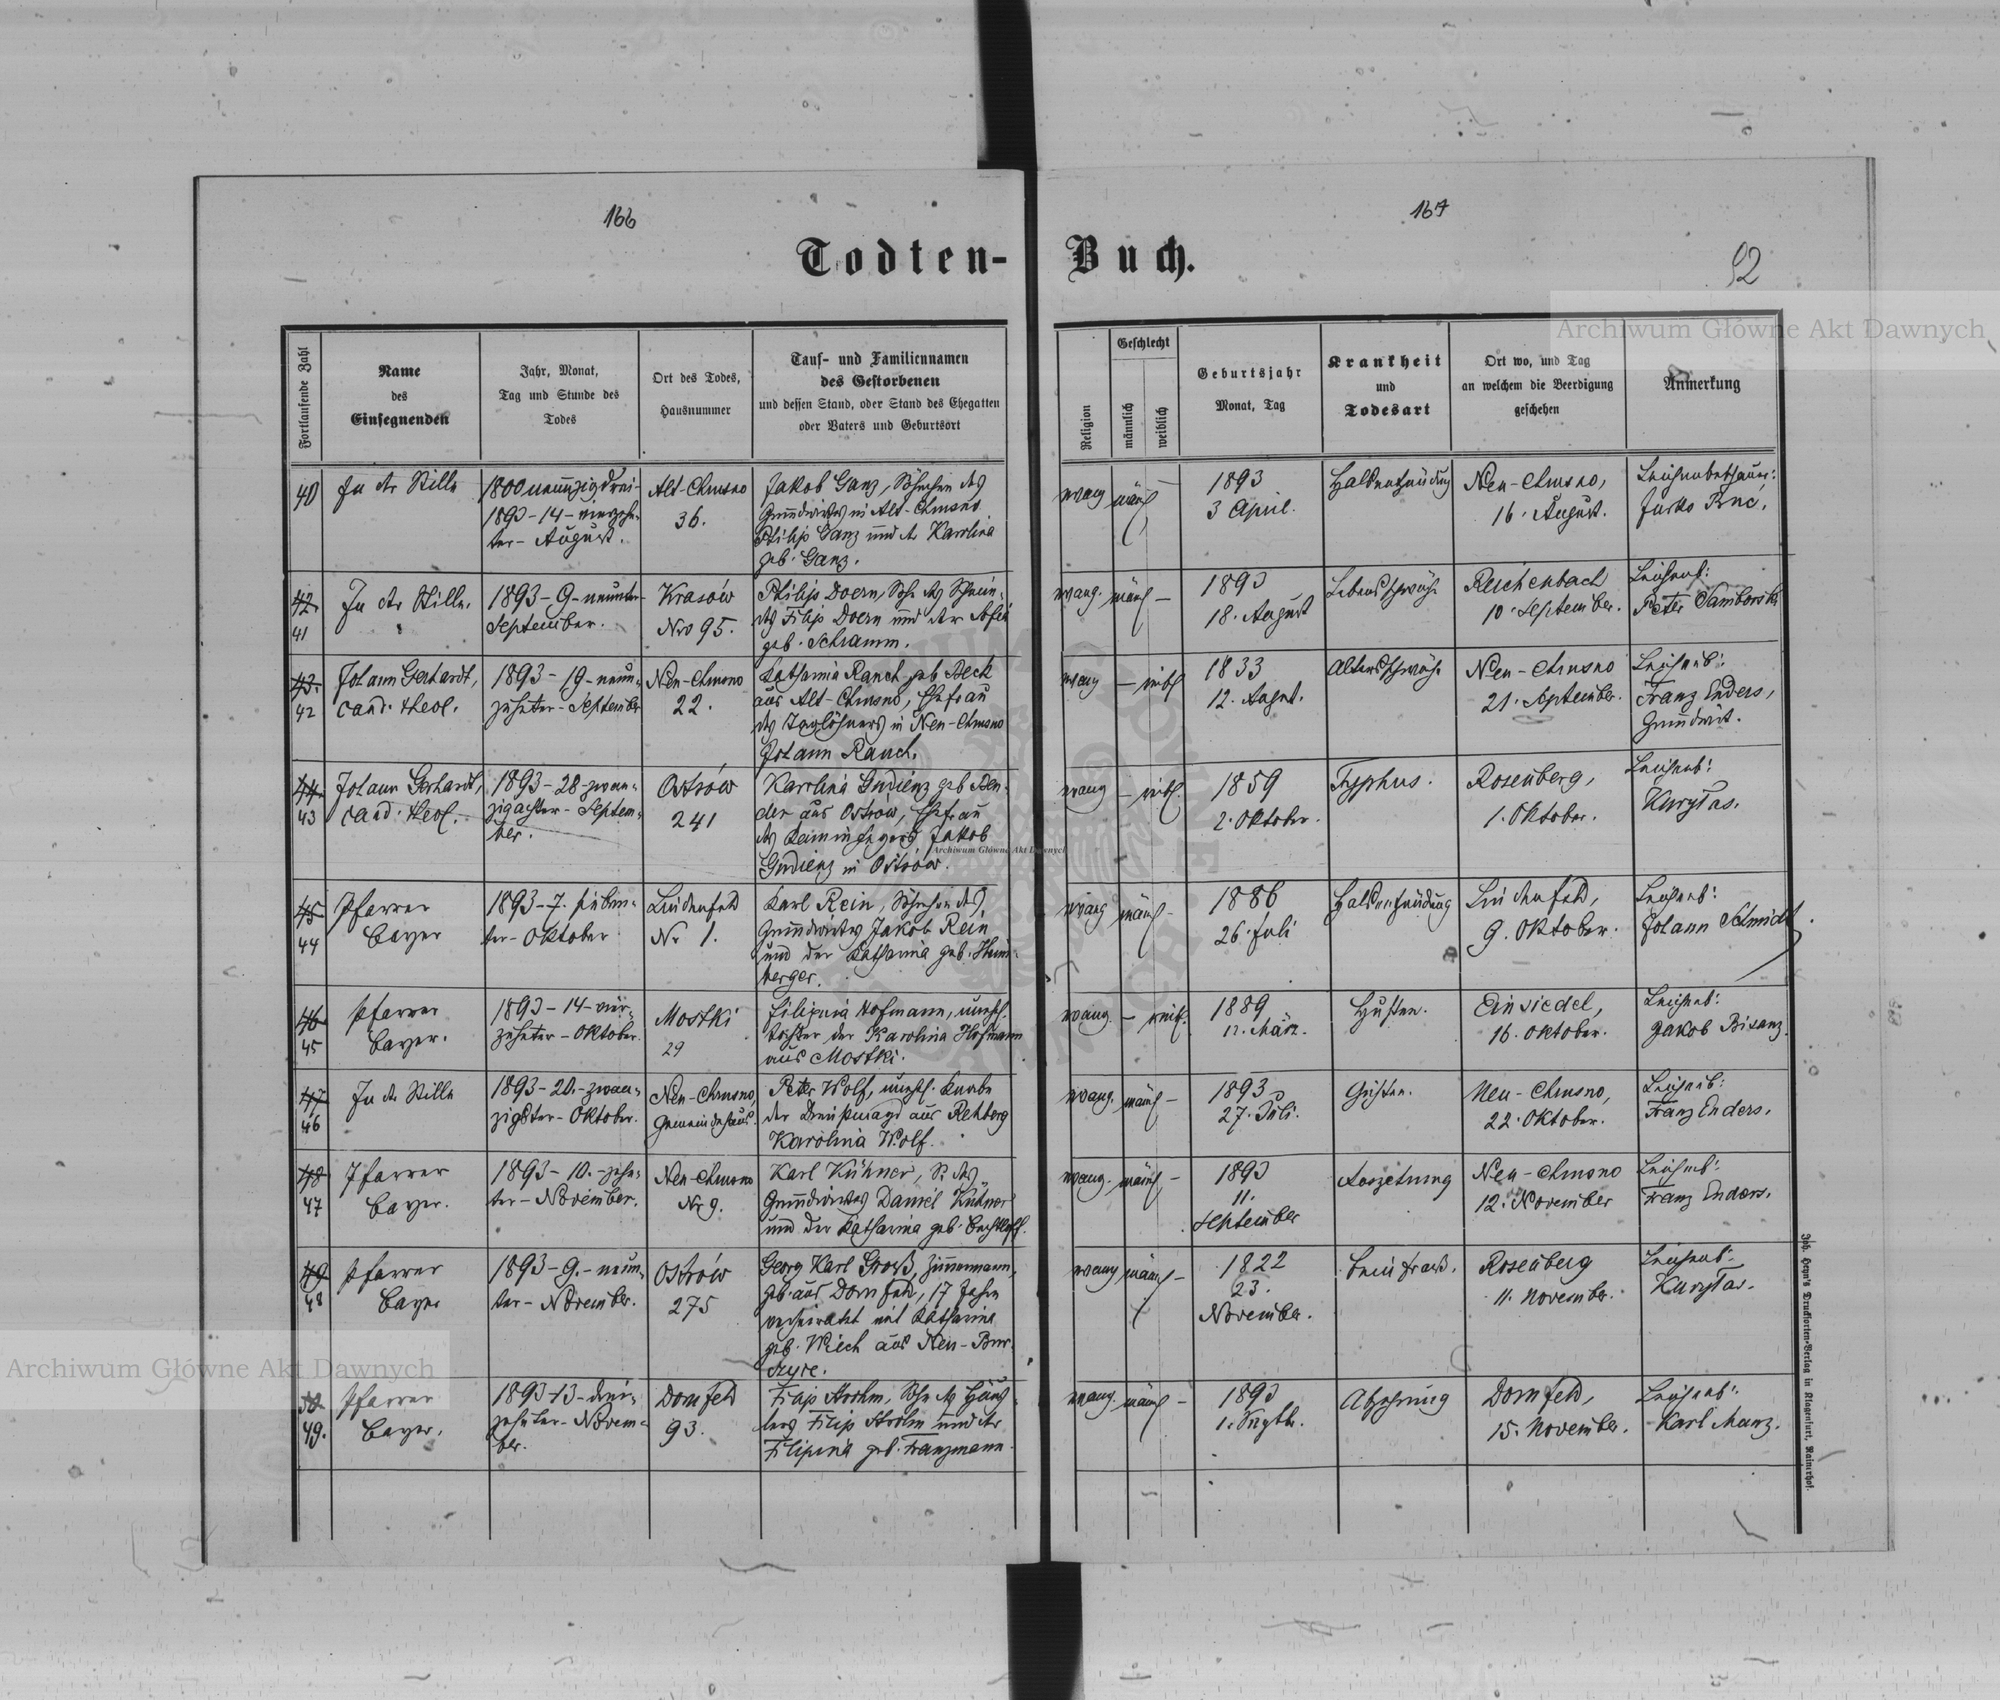 166
167
Todten-
Buch.
92
Archiwum Główne Akt Dawnych
Fortlaufende Zahl
Name
des
Einsegnenden
Jahr, Monat,
Tag und Stunde des
Todes
Ort des Todes,
Hausnummer
Tauf- und Familiennamen
des Gestorbenen
und dessen Stand, oder Stand des Ehegatten
oder Vaters und Geburtsort
Religion
Geschlecht
männlich
weiblich
Geburtsjahr
Monat, Tag
Krankheit
und
Todesart
Ort wo, und Tag
an welchem die Beerdigung
geschehen
Anmerkung
40
In der Stille
1800 neunzig drei-
1893-14-vierzehn-
ter-August.
Alt-Chrusno
36.
Jakob Ganz, Söhnchen des
Grundwirtes in Alt-Chrusno
Philip Ganz und der Karolina
geb. Ganz.
evang
männl
1893
3 April.
Halsentzündung
Neu-Chrusno,
16. August.
Leichenbeschauer:
42.
41
In der Stille.
1893-9-neunter-
September.
Krasów
Nro 95.
Philip Doern, Sohn des
des Filip Doern und der Sofia
geb. Schramm.
evang. männl -
1893
18. August
Lebensschwäche
Reichenbach
10. September.
Leichenb:
Peter Samborski
43.
42
Johann Gerhardt,
cand. theol.
1893-19-neun-
zehnter-September
Neu-Chrusno
22.
Katharina Rauch geb Beck
aus Alt-Chrusno, Ehefrau
des Taglöhners in Neu-Chrusno
Johann Rauch.
evang - weibl
1833
12. August.
Altersschwäche
Neu-Chrusno
21. September.
Leichenb:
Franz Enders,
Grundwirt.
44.
43
Johann Gerhardt,
cand. theol.
1893-28-zwan-
zigachter-Septem-
ber.
Ostrów
241
Karolina Gudienz geb Ben-
der aus Ostrów, Ehefrau
des Kaminfegers Jakob
Gudienz in Ostrów.
evang - weibl.
1859
2. Oktober.
Typhus.
Rosenberg,
1. Oktober.
Leichenb:
Kurytas.
45
44
Pfarrer
Bayer
1893-7. sieben-
ter-Oktober
Lindenfeld
Nr 1.
Karl Rein, Söhnchen des
Grundwirtes Jakob Rein
und der Katharina geb. Heim-
berger.
evang männl -
1886
26. Juli
Halsentzündung
Lindenfeld,
9. Oktober.
Leichenb:
Johann Schmidt.
46
45
Pfarrer
Bayer.
1893-14-vier-
zehnter-Oktober.
Mostki
29
Filipina Hofmann, unehl.
Tochter der Karolina Hofmann
aus Mostki.
evang. - weibl.
1889
12. März.
Husten.
Einsiedel,
16. Oktober.
Leichenb:
Jakob Bisanz.
47
46
In der Stille
1893-20.-zwan-
zigster-Oktober.
Neu-Chrusno,
Gemeindehaus.
Peter Wolf, unehl. Knabe
der Dienstmagd aus Rehberg
Karolina Wolf.
evang. männl -
1893
27. Juli.
Neu-Chrusno,
22. Oktober.
Leichenb:
Franz Enders.
48
47
Pfarrer
Bayer.
1893-10.-zehn-
ter-November.
Neu-Chrusno
Nr 9.
Karl Kühner, S. des
Grundwirtes Daniel Kühner
und der Katharina geb. Bechtloff.
evang. männl -
1893
11.
September
Auszehrung
Neu-Chrusno
12. November
Leichenb:
Franz Enders.
49
48
Pfarrer
Bayer
1893-9.-neun-
ter-November.
Ostrów
275
Georg Karl Groß, Zimmermann,
geb. aus Dornfeld, 17 Jahre
verheiratet mit Katharina
geb. Wiech aus Neu-Bur-
czyce.
evang männl -
1822
23.
November.
Beinfraß.
Rosenberg
11. November.
Leichenb:
Kurytas.
50
49.
Pfarrer
Bayer.
1893-13-drei-
zehnter-Novem-
ber.
Dornfeld
93.
Filip Strohm, Sohn des Häus-
lers Filip Strohm und der
Filipina geb. Franzmann.
evang. männl -
1893
1. Septb.
Abzehrung
Dornfeld,
15. November.
Leichenb:
Karl Manz.
Joh. Heyn's Drucksorten-Verlag in Klagenfurt, Rainerhof.
Archiwum Główne Akt Dawnych
Archiwum Główne Akt Dawnych